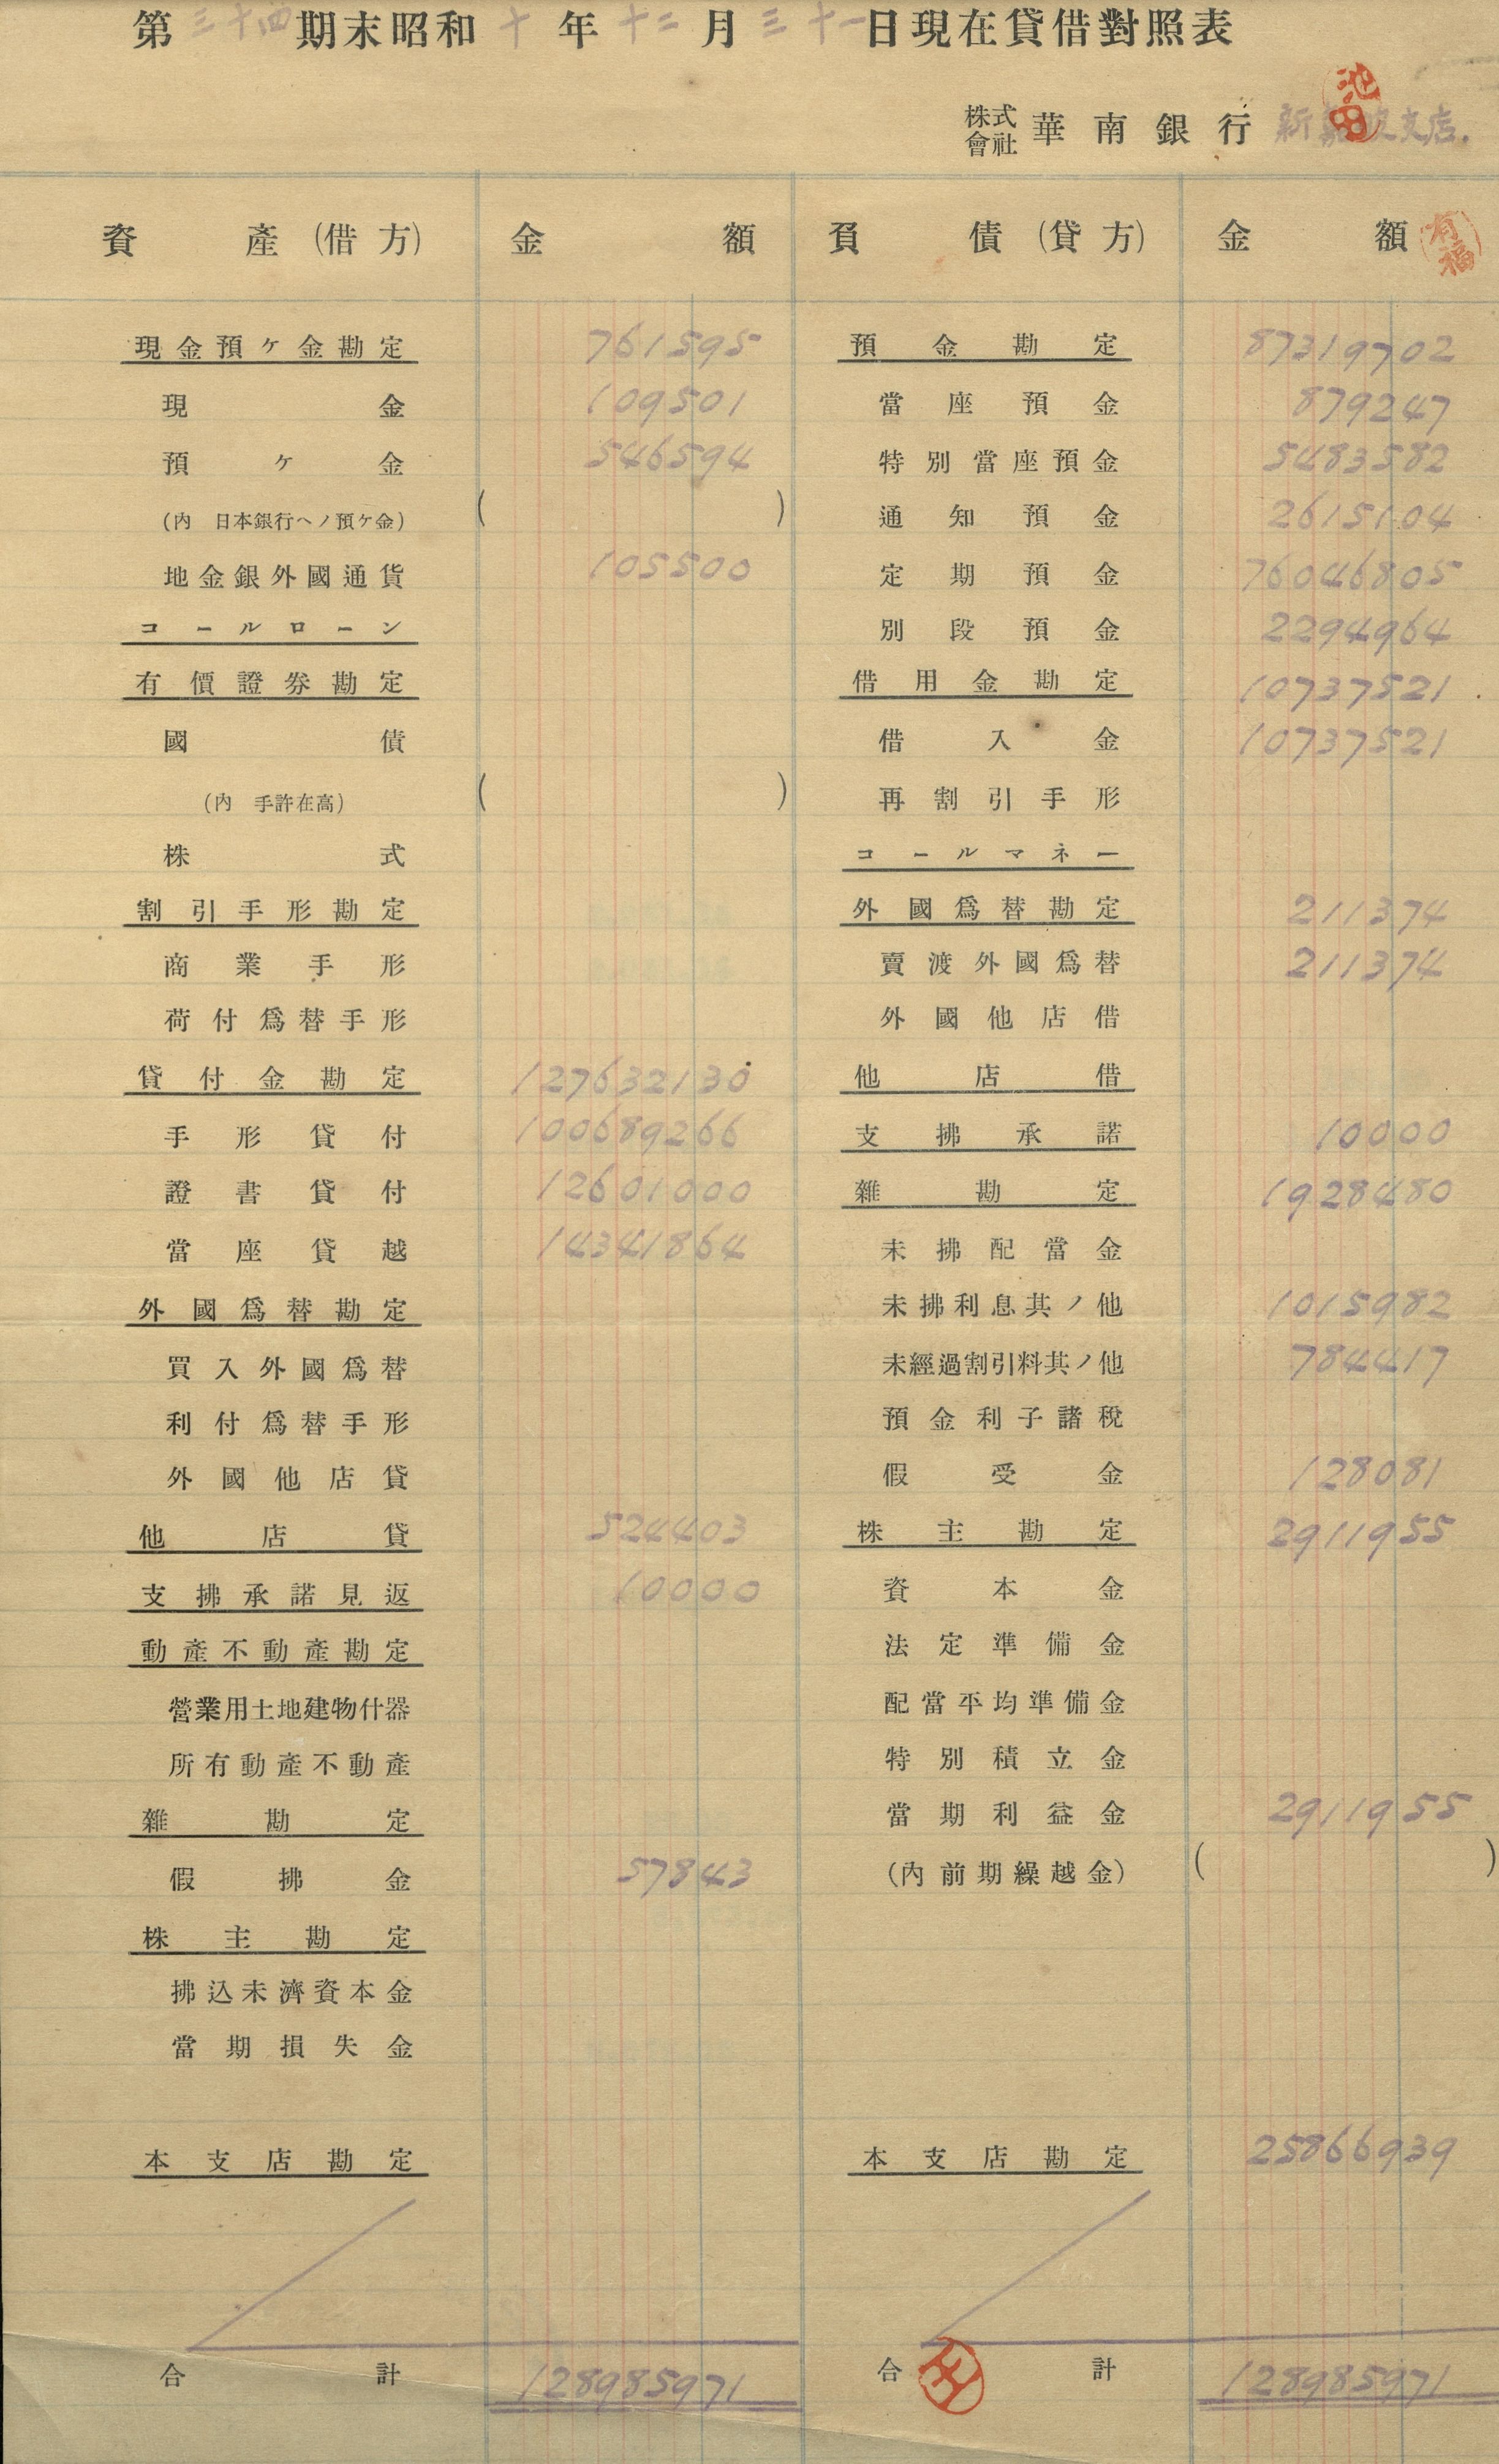 第三十四期末昭和十年十二月三十一日現在貸借對照表
株式會社 華南銀行 新嘉坡支店.
池田
資產(借方) 金額 負債(貸方) 金額
有福
現金預ヶ金勘定 761595 預金勘定 87319702
現金 109501 當座預金 879247
預ヶ金 546594 特別當座預金 5483582
(內 日本銀行ヘノ預ケ金) ( ) 通知預金 2615104
地金銀外國通貨 105500 定期預金 76046805
コールローン 別段預金 2294964
有價證券勘定 借用金勘定 10737521
國債 借入金 10737521
(內 手許在高) ( ) 再割引手形
株式 コールマネー
割引手形勘定 外國爲替勘定 211374
商業手形 賣渡外國爲替 211374
荷付爲替手形 外國他店借
貸付金勘定 127632130 他店借
手形貸付 100689266 支拂承諾 10000
證書貸付 12601000 雜勘定 1928480
當座貸越 14341864 未拂配當金
外國爲替勘定 未拂利息其ノ他 1015982
買入外國爲替 未經過割引料其ノ他 784417
利付爲替手形 預金利子諸稅
外國他店貸 假受金 128081
他店貸 524403 株主勘定 2911955
支拂承諾見返 10000 資本金
動產不動產勘定 法定準備金
營業用土地建物什器 配當平均準備金
所有動產不動產 特別積立金
雜勘定 當期利益金 2911955
假拂金 57843 (內前期繰越金) ( )
株主勘定
拂込未濟資本金
當期損失金
本支店勘定 本支店勘定 25866939
合計 128985971 合計 128985971
王